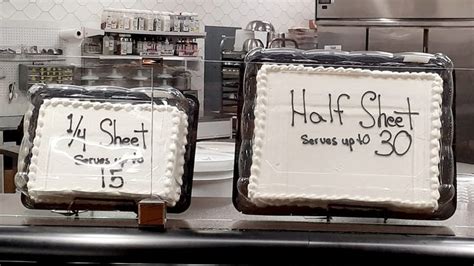 1/4 Sheet
Serves up to
15
Half Sheet
Serves up to 30